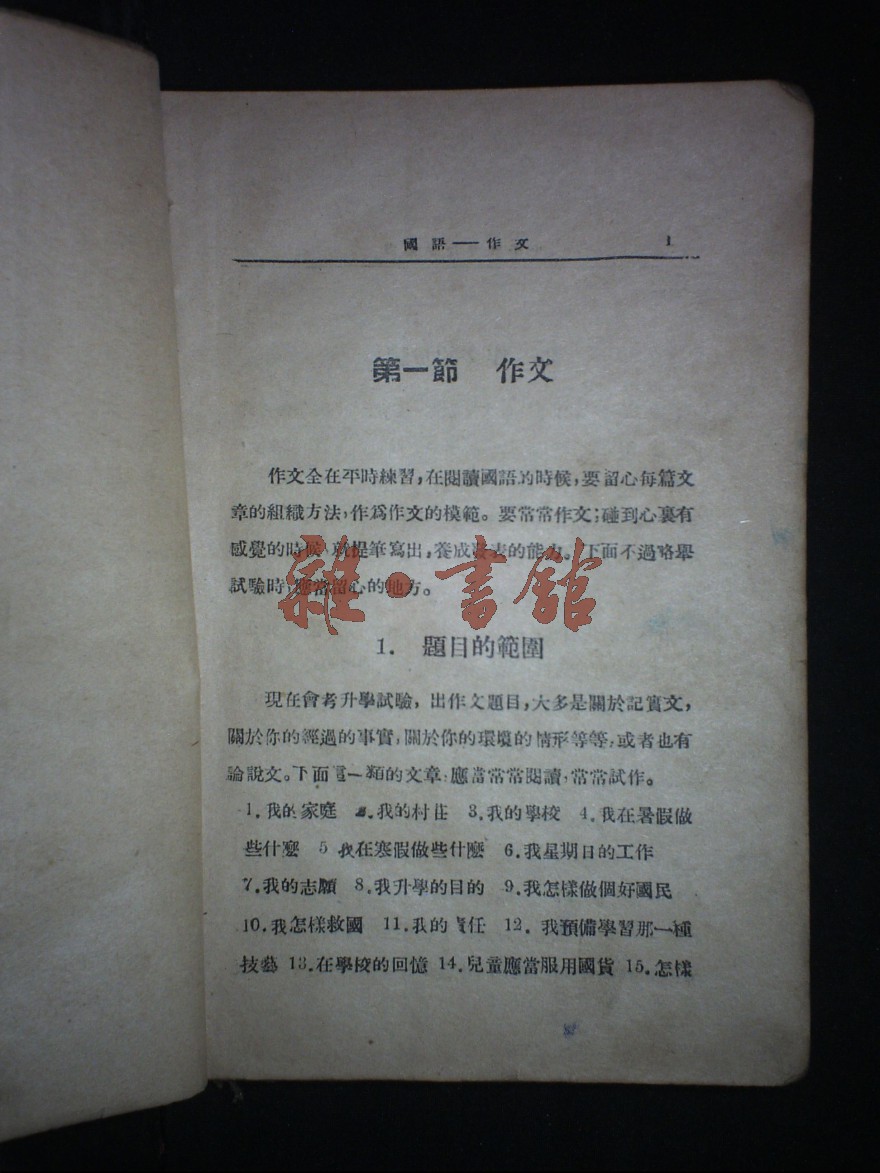 國語——作文 1
第一節 作文
作文全在平時練習,在閱讀國語的時候,要留心每篇文
章的組織方法,作爲作文的模範。要常常作文;碰到心裏有
感覺的時候,就提筆寫出,養成發表的能力。下面不過略舉
試驗時,應當留心的地方。
雜·書館
1. 題目的範圍
現在會考升學試驗,出作文題目,大多是關於記實文,
關於你的經過的事實,關於你的環境的情形等等,或者也有
論說文。下面這一類的文章,應當常常閱讀,常常試作。
1.我的家庭 2.我的村莊 3.我的學校 4.我在暑假做
些什麼 5 我在寒假做些什麼 6.我星期日的工作
7.我的志願 8.我升學的目的 9.我怎樣做個好國民
10.我怎樣救國 11.我的責任 12.我預備學習那一種
技藝 13.在學校的回憶 14.兒童應當服用國貨 15.怎樣